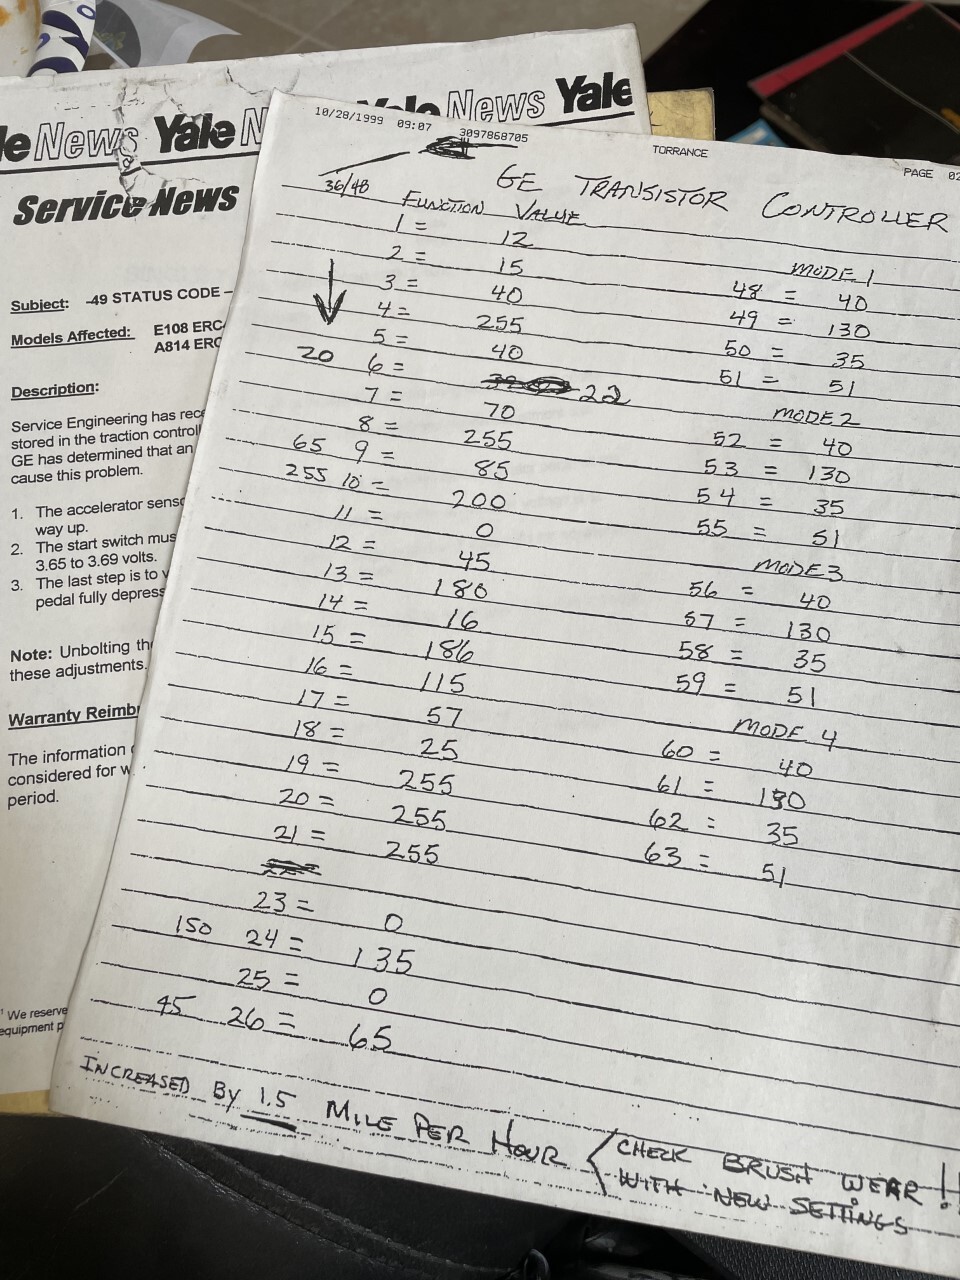 News Yale
News Yale
Service News
Subject: -49 STATUS CODE –
Models Affected: E108 ERC
A814 ERC
Description:
Service Engineering has rece
stored in the traction controll
GE has determined that an
cause this problem.
1. The accelerator senso
way up.
2. The start switch mus
3.65 to 3.69 volts.
3. The last step is to v
pedal fully depress
Note: Unbolting th
these adjustments.
Warranty Reimb
The information
considered for w
period.
We reserve
equipment p
10/28/1999 09:07 3097868705 TORRANCE PAGE 02
GE TRANSISTOR CONTROLLER
36/48
FUNCTION VALUE
1 = 12
2 = 15
3 = 40
4 = 255
5 = 40
20 6 = 22
7 = 70
8 = 255
65 9 = 85
255 10 = 200
11 = 0
12 = 45
13 = 180
14 = 16
15 = 186
16 = 115
17 = 57
18 = 25
19 = 255
20 = 255
21 = 255
23 = 0
150 24 = 135
25 = 0
45 26 = 65
MODE 1
48 = 40
49 = 130
50 = 35
51 = 51
MODE 2
52 = 40
53 = 130
54 = 35
55 = 51
MODE 3
56 = 40
57 = 130
58 = 35
59 = 51
MODE 4
60 = 40
61 = 130
62 = 35
63 = 51
INCREASED By 1.5 MILE PER HOUR
CHECK BRUSH WEAR!!
WITH NEW SETTINGS